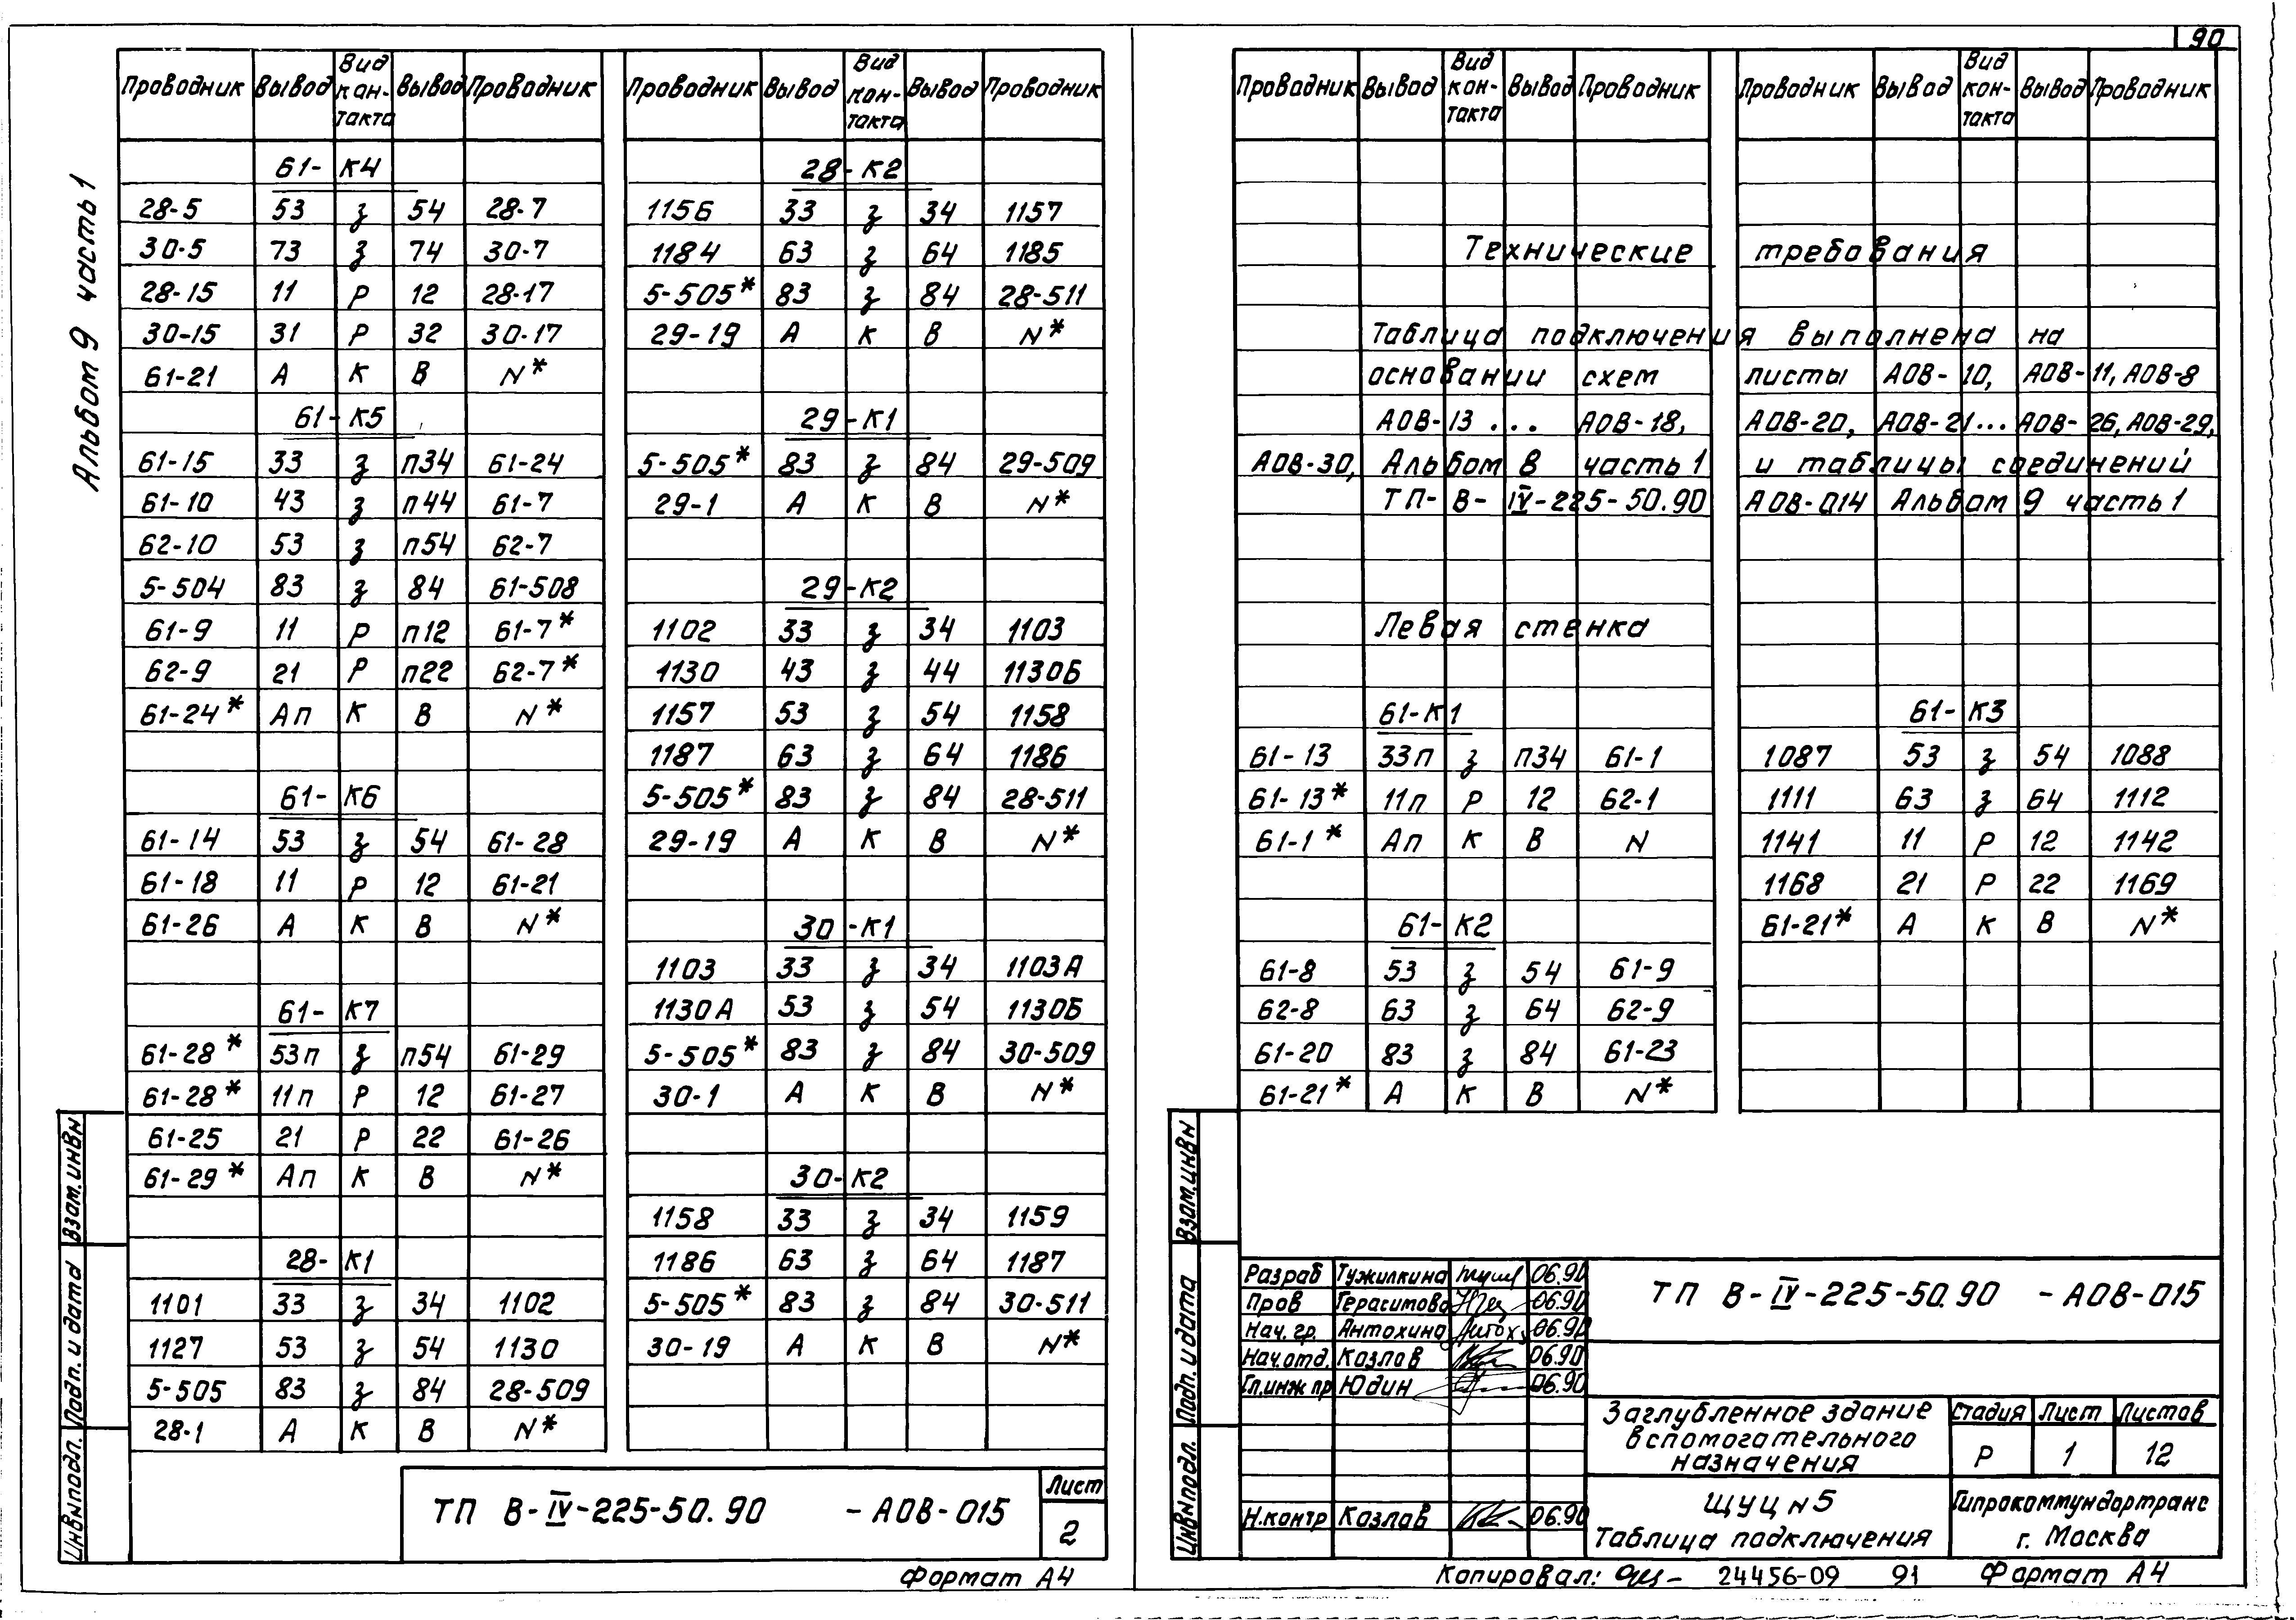 90
Альбом 9 часть 1
Проводник Вывод Вид контакта Вывод Проводник
61-К4
28-5 53 з 54 28-7
30-5 73 з 74 30-7
28-15 11 Р 12 28-17
30-15 31 Р 32 30-17
61-21 А К В N*
61-К5
61-15 33 з п34 61-24
61-10 43 з п44 61-7
62-10 53 з п54 62-7
5-504 83 з 84 61-508
61-9 11 Р п12 61-7*
62-9 21 Р п22 62-7*
61-24* Ап К В N*
61-К6
61-14 53 з 54 61-28
61-18 11 Р 12 61-21
61-26 А К В N*
61-К7
61-28* 53п з п54 61-29
61-28* 11п Р 12 61-27
61-25 21 Р 22 61-26
61-29* Ап К В N*
28-К1
1101 33 з 34 1102
1127 53 з 54 1130
5-505 83 з 84 28-509
28-1 А К В N*
Проводник Вывод Вид контакта Вывод Проводник
28-К2
1156 33 з 34 1157
1184 63 з 64 1185
5-505* 83 з 84 28-511
29-19 А К В N*
29-К1
5-505* 83 з 84 29-509
29-1 А К В N*
29-К2
1102 33 з 34 1103
1130 43 з 44 1130Б
1157 53 з 54 1158
1187 63 з 64 1186
5-505* 83 з 84 28-511
29-19 А К В N*
30-К1
1103 33 з 34 1103А
1130А 53 з 54 1130Б
5-505* 83 з 84 30-509
30-1 А К В N*
30-К2
1158 33 з 34 1159
1186 63 з 64 1187
5-505* 83 з 84 30-511
30-19 А К В N*
Взам.инвн
Подп. и дата
Инвнподл.
ТП В-IV-225-50.90 -АОВ-015
Лист
2
Формат А4
Проводник Вывод Вид контакта Вывод Проводник
Проводник Вывод Вид контакта Вывод Проводник
Технические требования
Таблица подключения выполнена на
основании схем листы АОВ-10, АОВ-11, АОВ-8
АОВ-13 ... АОВ-18, АОВ-20, АОВ-21... АОВ-26, АОВ-29,
АОВ-30, Альбом 8 часть 1 и таблицы соединений
ТП-В-IV-225-50.90 АОВ-014 Альбом 9 часть 1
Левая стенка
61-К1
61-13 33п з п34 61-1
61-13* 11п Р 12 62-1
61-1* Ап К В N
61-К2
61-8 53 з 54 61-9
62-8 63 з 64 62-9
61-20 83 з 84 61-23
61-21* А К В N*
61-К3
1087 53 з 54 1088
1111 63 з 64 1112
1141 11 Р 12 1142
1168 21 Р 22 1169
61-21* А К В N*
Взам.инвн
Подп. и дата
Инвнподл.
Разраб Тужилкина 06.90
Пров Герасимова 06.90
Нач. гр. Антохина 06.90
Нач.отд. Козлов 06.90
Гл.инж пр Юдин 06.90
Н.контр Козлов 06.90
ТП В-IV-225-50.90 -АОВ-015
Заглубленное здание
вспомогательного
назначения
Стадия Лист Листов
Р 1 12
ЩУЦ N 5
Таблица подключения
Гипрокоммундортранс
г. Москва
Копировал: 24456-09 91 Формат А4